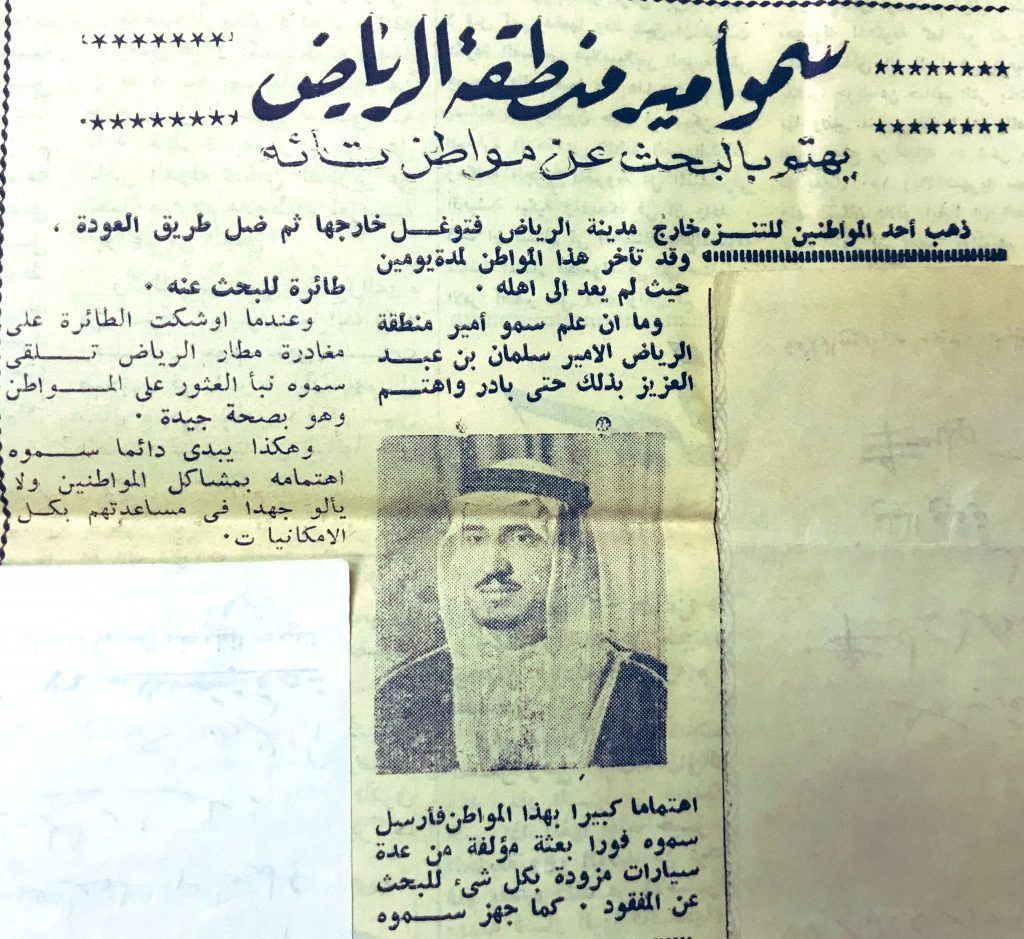 سمو أمير منطقة الرياض
يهتم بالبحث عن مواطن تائه
ذهب أحد المواطنين للتنزه خارج مدينة الرياض فتوغل خارجها ثم ضل طريق العودة ،
وقد تأخر هذا المواطن لمدة يومين
حيث لم يعد الى اهله ٠
وما ان علم سمو أمير منطقة
الرياض الامير سلمان بن عبد
العزيز بذلك حتى بادر واهتم
اهتماما كبيرا بهذا المواطن فأرسل
سموه فورا بعثة مؤلفة من عدة
سيارات مزودة بكل شىء للبحث
عن المفقود ٠ كما جهز سموه
طائرة للبحث عنه ٠
وعندما اوشكت الطائرة على
مغادرة مطار الرياض تلقى
سموه نبأ العثور على المواطن
وهو بصحة جيدة ٠
وهكذا يبدى دائما سموه
اهتمامه بمشاكل المواطنين ولا
يألو جهدا فى مساعدتهم بكل
الامكانيا ت٠